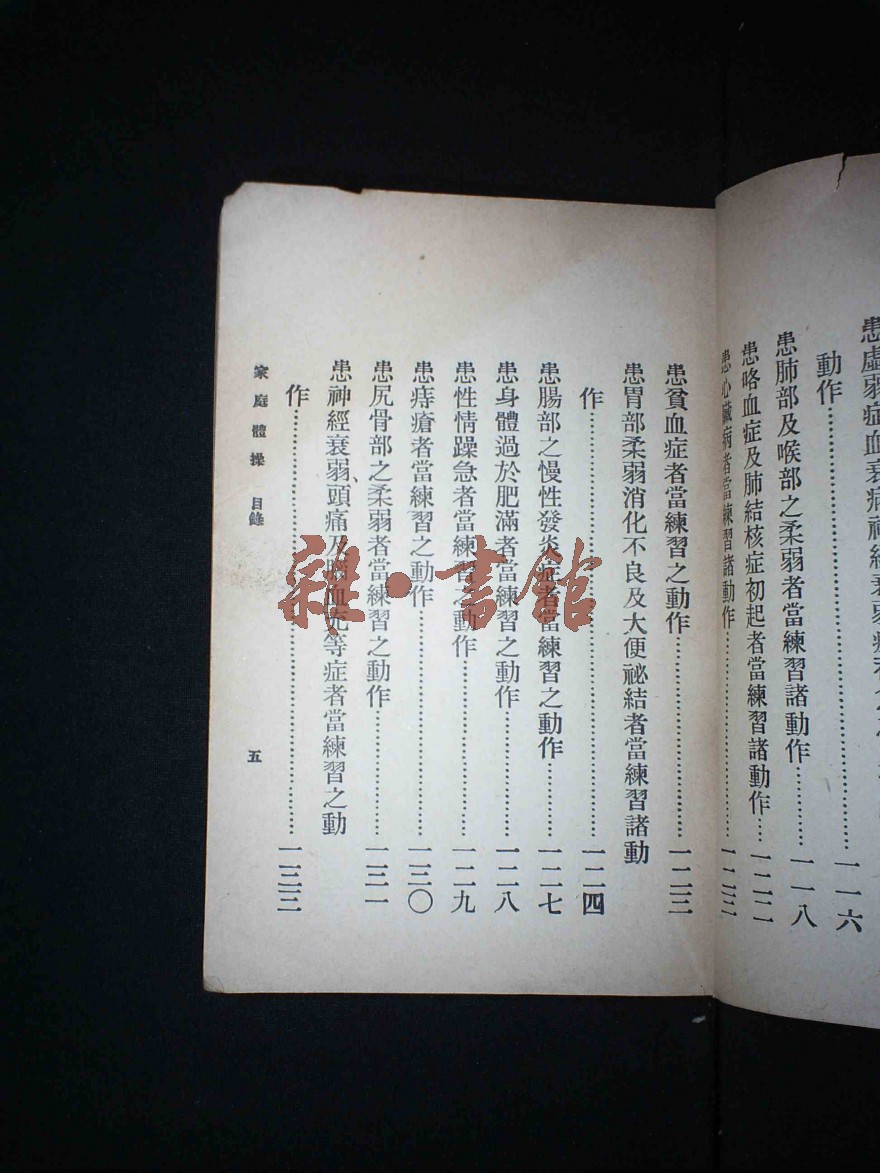 患虛弱症血衰病神經衰弱病
動作……一一六
患肺部及喉部之柔弱者當練習諸動作……一一八
患咯血症及肺結核症初起者當練習諸動作…一二二
患心臟病者當練習諸動作……一二二
患貧血症者當練習之動作……一二三
患胃部柔弱消化不良及大便祕結者當練習諸動
作……一二四
患腸部之慢性發炎症者當練習之動作……一二七
患身體過於肥滿者當練習之動作……一二八
患性情躁急者當練習之動作……一二九
患痔瘡者當練習之動作……一三〇
患尻骨部之柔弱者當練習之動作……一三一
患神經衰弱、頭痛及腦血充等症者當練習之動
作……一三三
家庭體操 目錄
五
雜·書館